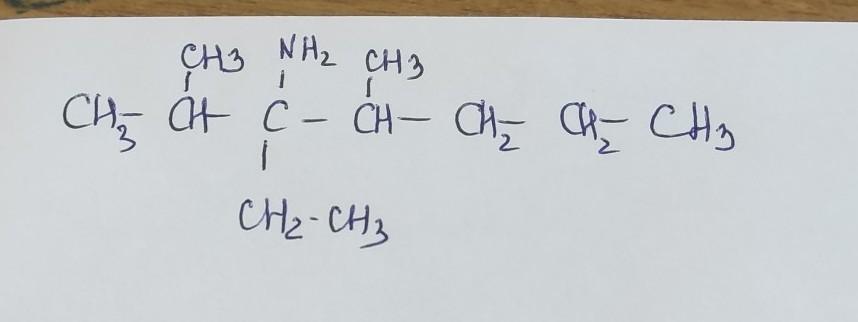 CH3 NH2 CH3
CH3- CH- C - CH- CH2- CH2- CH3
CH2-CH3